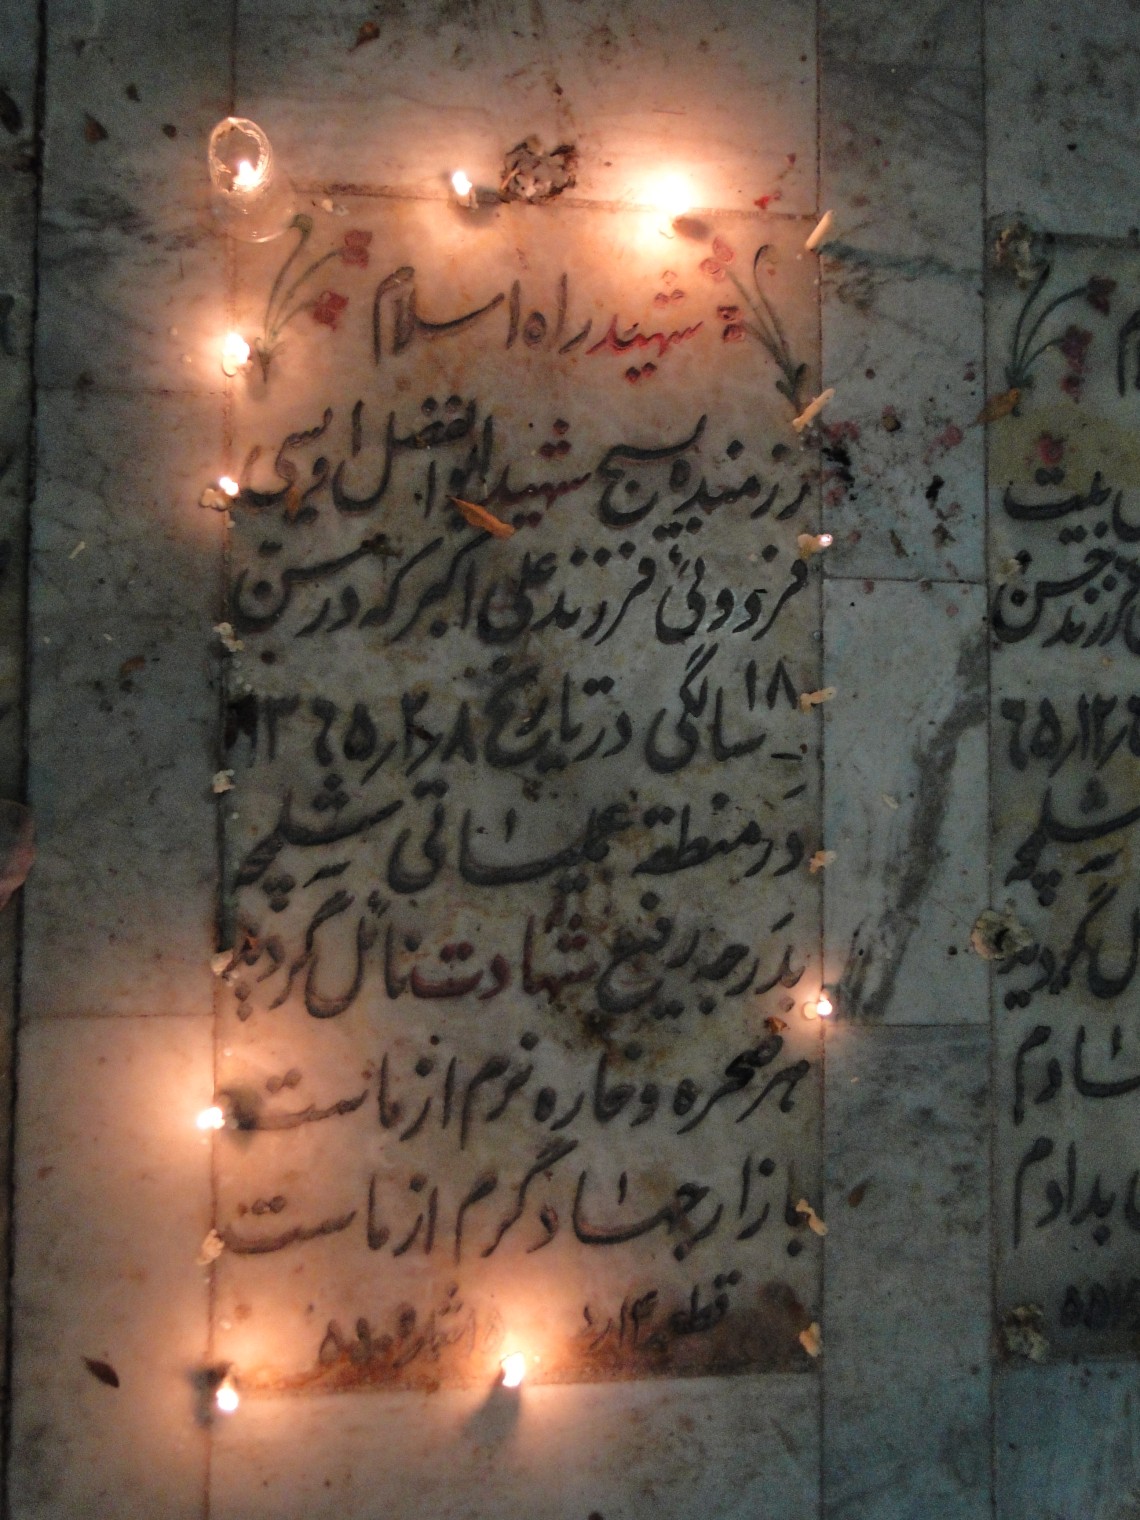 شهید راه اسلام
رزمنده بسیج شهید ابوالفضل اویسی
فردوئی فرزند علی اکبر که در سن
۱۸ سالگی در تاریخ ۸ر۳ر۱۳۶۵
در منطقه عملیاتی شلمچه
بدرجه رفیع شهادت نائل گردید
هر صخره و خاره نرم از ماست
بازار جهاد گرم از ماست
قطعه
بیت
فرزند حسن
۱۲ر۶۵
شلمچه
ل گردید
بدادم